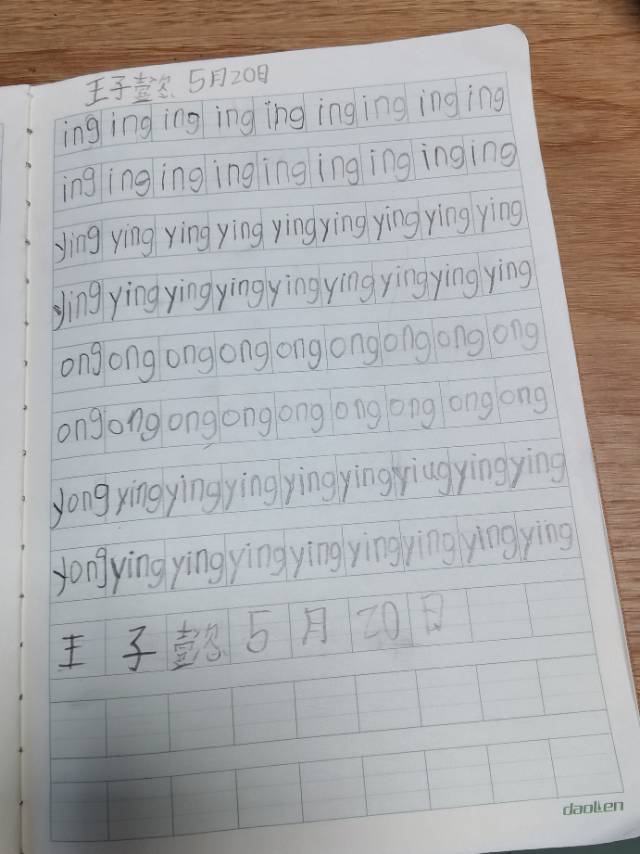 王子懿 5月20日
ing ing ing ing ing ing ing ing ing
ing ing ing ing ing ing ing ing ing
ying ying ying ying ying ying ying ying ying
ying ying ying ying ying ying ying ying ying
ong ong ong ong ong ong ong ong ong
ong ong ong ong ong ong ong ong ong
yong ying ying ying ying ying yiug ying ying
yong ying ying ying ying ying ying ying ying
王 子 懿 5 月 20 日
daolien